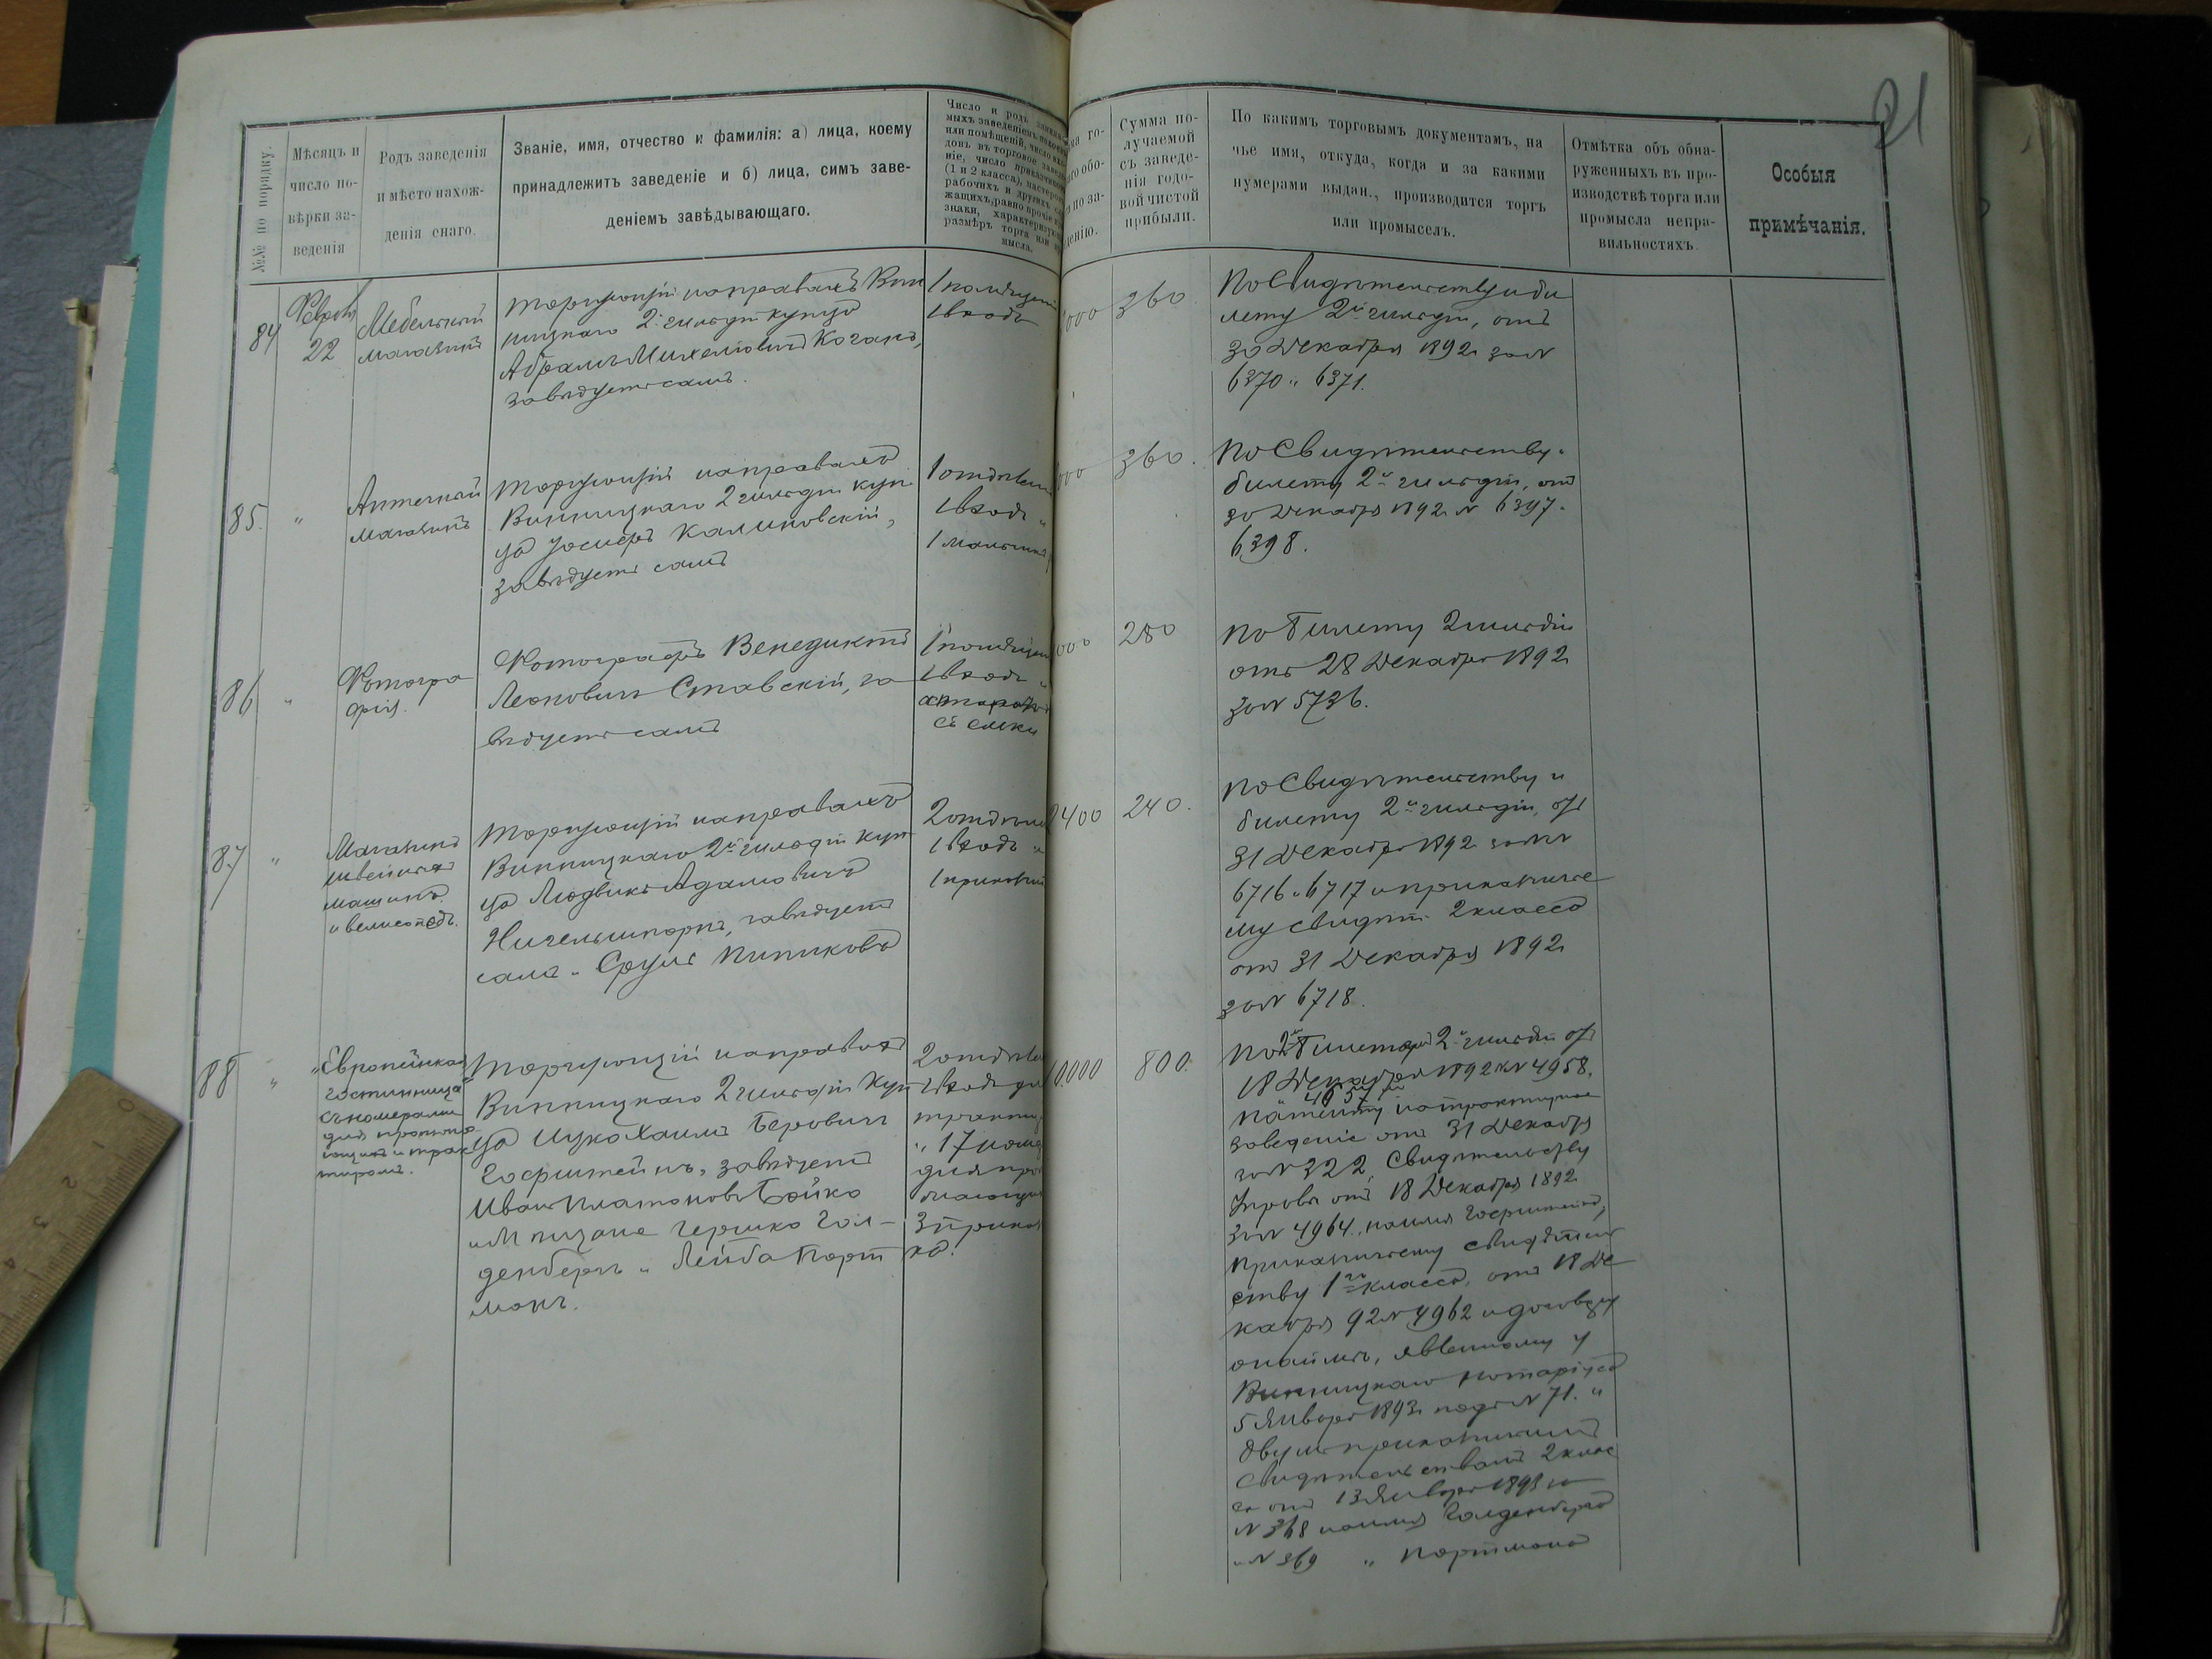 21
№№ по порядку.
Мѣсяцъ и
число по-
вѣрки за-
веденія
Родъ заведенія
и мѣсто нахож-
денія онаго.
Званіе, имя, отчество и фамилія: а) лица, коему
принадлежитъ заведеніе и б) лица, симъ заве-
деніемъ завѣдывающаго.
Число и родъ
или помѣщеній, число
ніе, число
(1 и 2 класса),
рабочихъ и другихъ
жащихъ, равно прочіе
знаки,
размѣръ торга или
мысла.
Сумма по-
лучаемой
съ заведе-
нія годо-
вой чистой
прибыли.
По какимъ торговымъ документамъ, на
чье имя, откуда, когда и за какими
нумерами выдан., производится торгъ
или промыселъ.
Отмѣтка объ обна-
руженныхъ въ про-
изводствѣ торга или
промысла непра-
вильностяхъ
Особыя
примѣчанія.
84
22
Мебельный
магазинъ
Торгующій на правахъ Вин
ницкаго 2 гильдіи купца
Абрамъ Михелевичъ Коганъ,
завѣдуетъ самъ.
1 помѣщеніе
1 входъ
000
360
По свидѣтельству и би
лету 2й гильдіи, отъ
30 Декабря 1892 г за №
6370 и 6371.
85.
"
Аптечный
магазинъ
Торгующій на правахъ
Винницкаго 2 гильдіи куп
ца Іосифъ Калиновскій,
завѣдуетъ самъ
1 входъ
000
360.
По свидѣтельству и
билету 2й гильдіи, отъ
30 Декабря 1892 г № 6397 и
6398.
86
"
Фотогра
фія.
Фотографъ Венедиктъ
Леоновичъ Ставскій, за
вѣдуетъ самъ
1 входъ
000
280
По билету 2 гильдіи
отъ 28 Декабря 1892
за № 5736.
87
"
Магазинъ
швейныхъ
машинъ
и велосипедъ.
Торгующій на правахъ
Винницкаго 2й гильдіи куп
ца Людвикъ Адамовичъ
завѣдуетъ
1 входъ
2400
240.
По свидѣтельству и
билету 2й гильдіи, отъ
31 Декабря 1892 за №№
6716 и 6717 и приказчичье
му свидѣт. 2 класса
отъ 31 Декабря 1892
за № 6718.
88
"
"Европейская
гостинница"
съ номерами
для проѣзжа
ющихъ и трак
тиромъ.
Торгующій на правахъ
Винницкаго 2 гильдіи куп
ца Ицко Хаимъ Беровичъ
завѣдуетъ
Иванъ Платоновъ Бойко
Гершко Гол-
денбергъ и Лейба Порт
монъ.
17
для
10.000
800.
По 2 билетамъ 2й гильдіи отъ
18 Декабря 1892 № 4958,
4957 и
патенту на трактирное
заведеніе отъ 31 Декабря
за № 322, свидѣтельству
отъ 18 Декабря 1892
за № 4964, на имя
приказчичьему свидѣтель
ству 1го класса, отъ 18 Де
кабря 92 № 4962 и договору
о наймѣ, явленному у
Винницкаго Нотаріуса
5 Января 1893 г подъ № 71. и
двумъ приказчичьимъ
свидѣтельствамъ 2 клас
са отъ 13 Января 1893 за
№ 368 на имя Голденберга
и № 369 " Портмона